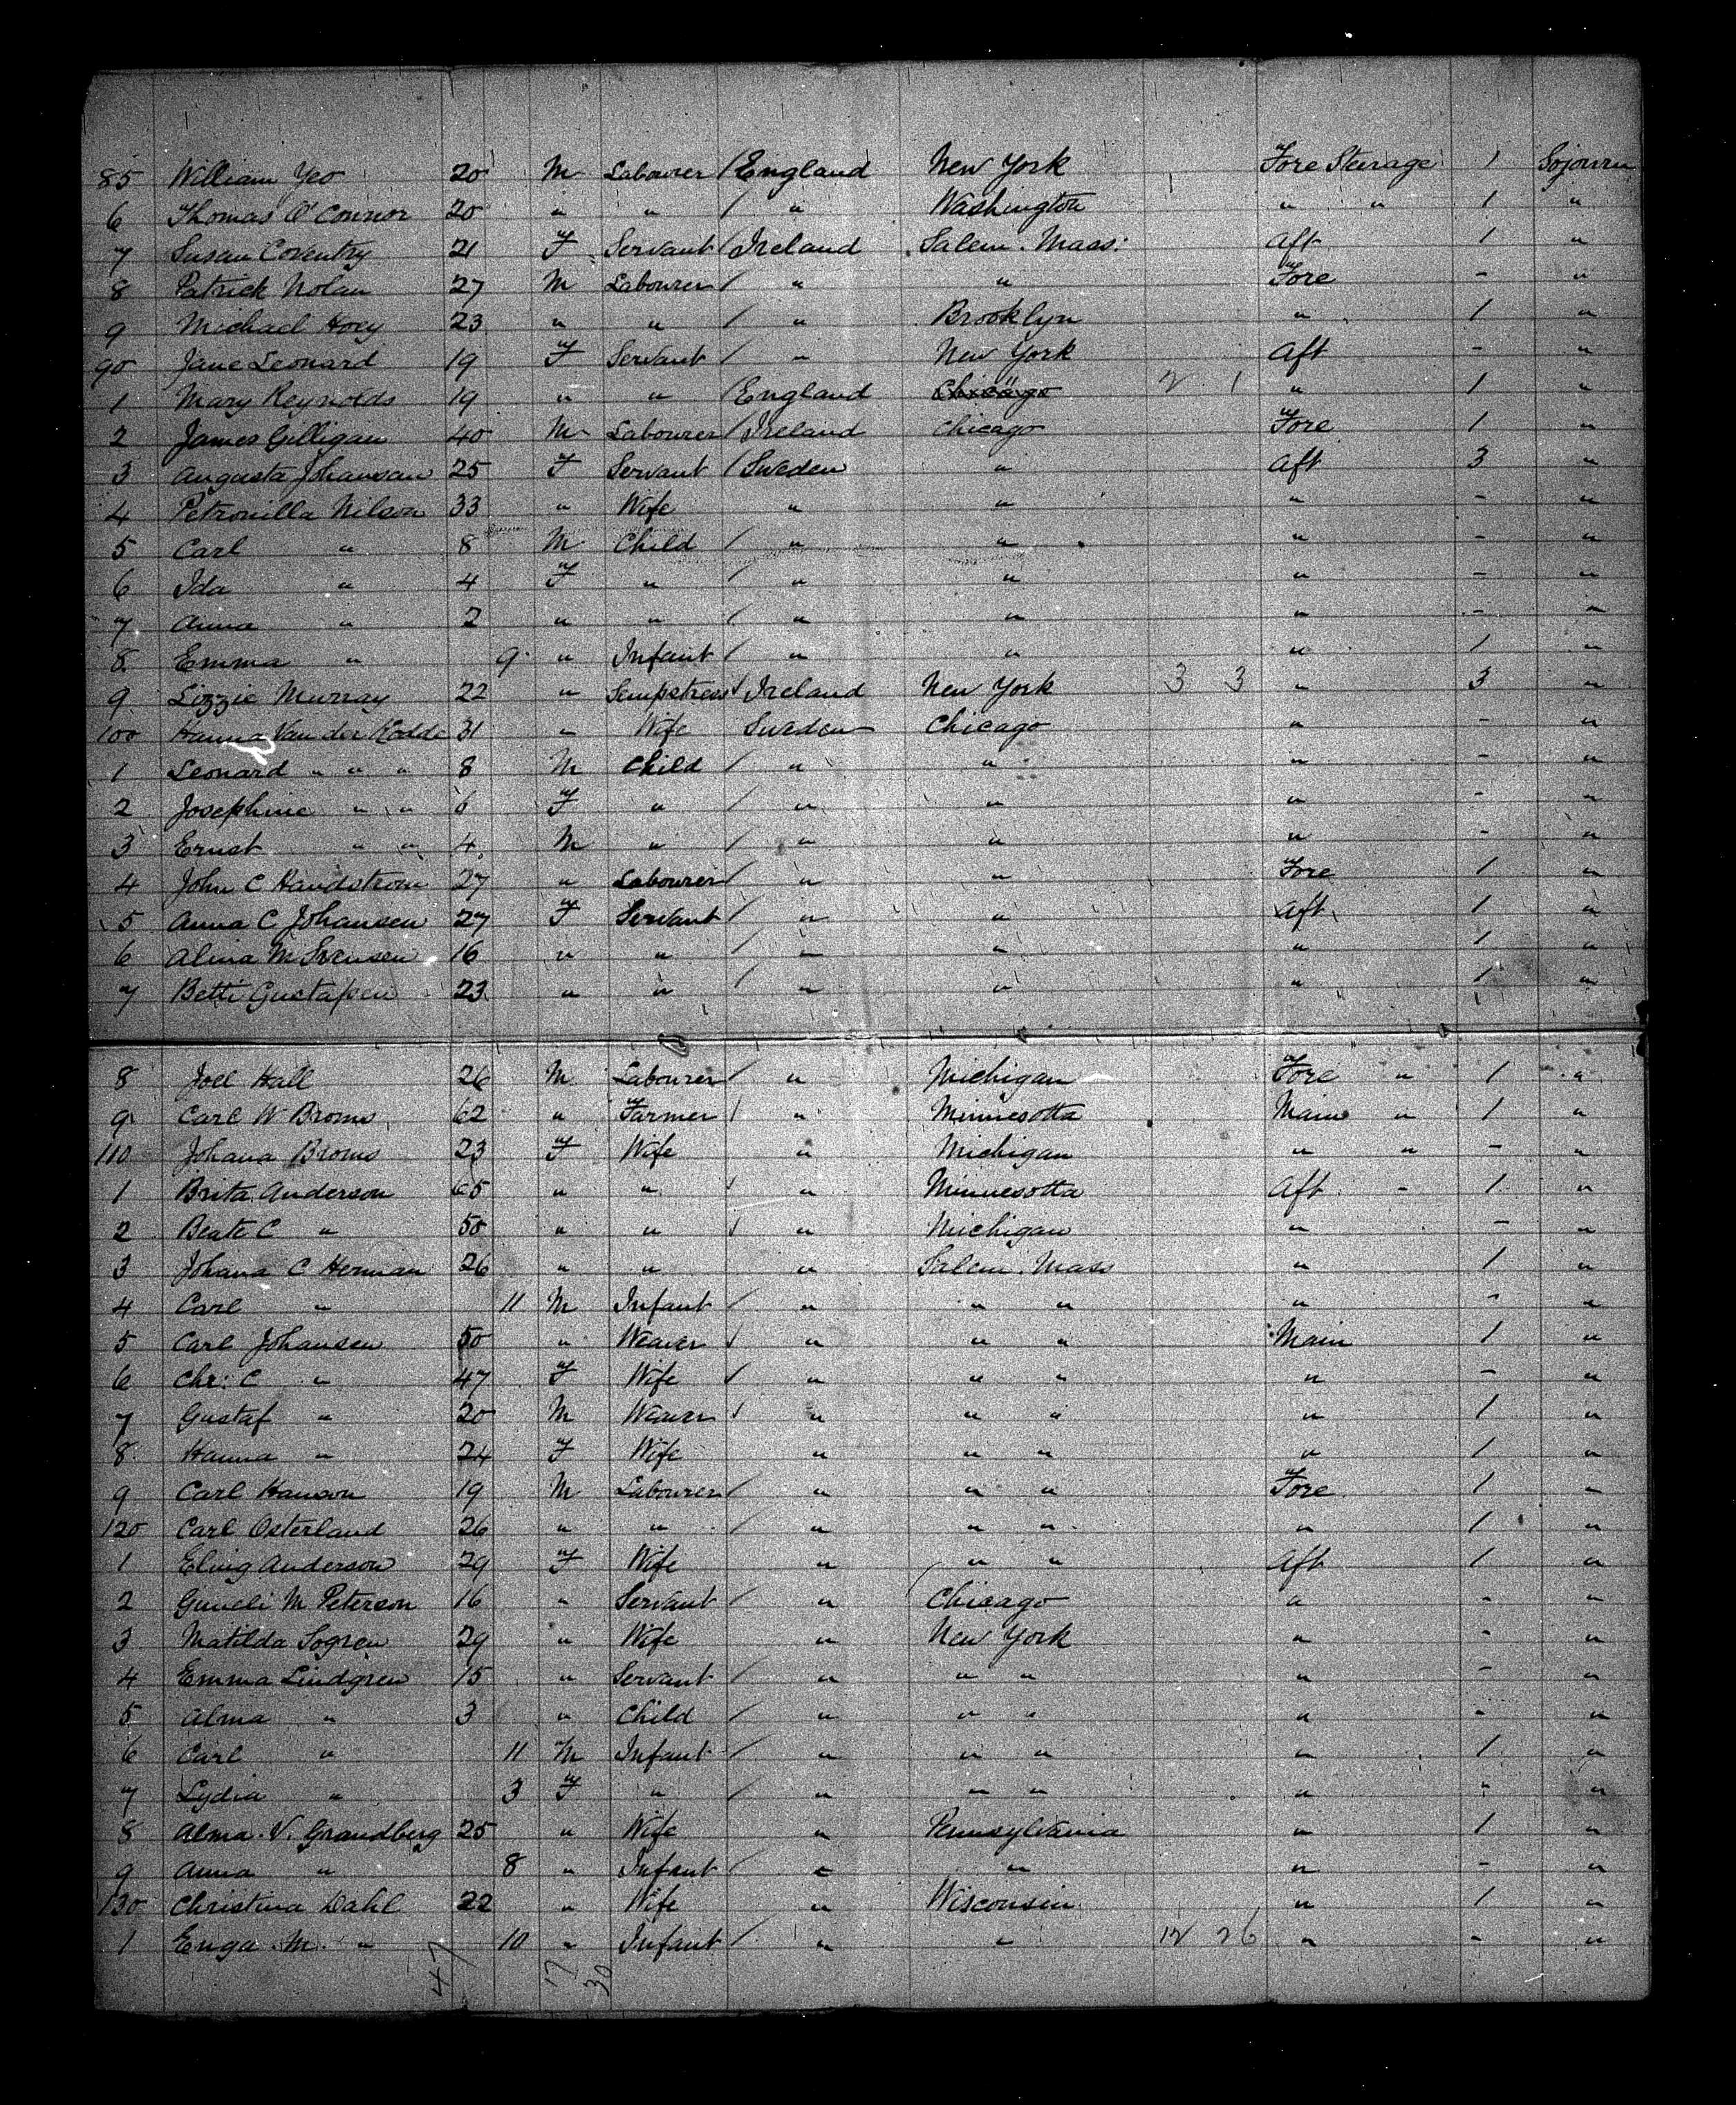 85 William Yeo 20 M Labourer / England New York Fore Steerage 1 Sojourn
6 Thomas O'Connor 20 " " / " Washington " " 1 "
7 Susan Coventry 21 F Servant / Ireland Salem. Mass: Aft 1 "
8 Patrick Nolan 27 M Labourer / " " Fore - "
9 Michael Hoey 23 " " / " Brooklyn " 1 "
90 Jane Leonard 19 F Servant / " New York Aft - "
1 Mary Reynolds 19 " " / England Chicago 2 1 " 1 "
2 James Gilligan 40 M Labourer / Ireland Chicago Fore 1 "
3 Augusta Johanson 25 F Servant / Sweden " Aft 3 "
4 Petronilla Nilson 33 " Wife " " " - "
5 Carl " 8 M Child / " " " - "
6 Ida " 4 F " / " " " - "
7 Anna " 2 " " / " " " - "
8 Emma " 9 " Infant / " " " 1 "
9 Lizzie Murray 22 " Sempstress / Ireland New York 3 3 " 3 "
100 Hanna Van der Kodde 31 " Wife Sweden Chicago " - "
1 Leonard " " " 8 M Child / " " " - "
2 Josephine " " 6 F " / " " " - "
3 Ernst " " 4 M " / " " " - "
4 John C Handstrom 27 " Labourer / " " Fore 1 "
5 Anna C Johansen 27 F Servant / " " Aft 1 "
6 Alina M Svensen 16 " " / " " " 1 "
7 Betti Gustafsen 23 " " / " " " 1 "
8 Joel Hall 26 M Labourer / " Michigan Fore " 1 "
9 Carl W Broms 62 " Farmer / " Minnesotta Main " 1 "
110 Johana Broms 23 F Wife " Michigan " " - "
1 Brita Anderson 65 " " / " Minnesotta Aft - 1 "
2 Beate C " 50 " " / " Michigan " - "
3 Johana C Herman 26 " " " Salem. Mass " 1 "
4 Carl " 11 M Infant / " " " " - "
5 Carl Johansen 50 " Weaver / " " " Main 1 "
6 Chr: C " 47 F Wife / " " " " - "
7 Gustaf " 20 M Weaver / " " " " 1 "
8 Hanna " 24 F Wife " " " " 1 "
9 Carl Hanson 19 M Labourer / " " " Fore 1 "
120 Carl Osterland 26 " " / " " " " 1 "
1 Eling Anderson 29 F Wife " " " Aft 1 "
2 M Peterson 16 " Servant / " Chicago " - "
3 Matilda Sogren 29 " Wife " New York " - "
4 Emma Lindgren 15 " Servant / " " " " - "
5 Alma " 3 " Child / " " " " - "
6 Carl " 11 M Infant / " " " " 1 "
7 Lydia " 3 F " / " " " " - "
8 Alma. V. Grandberg 25 " Wife " Pennsylvania " 1 "
9 Anna " 8 " Infant / " " " - "
130 Christina Dahl 22 " Wife " Wisconsin " 1 "
1 Enga. M. " 10 " Infant / " " 12 26 " - "
47 17 30